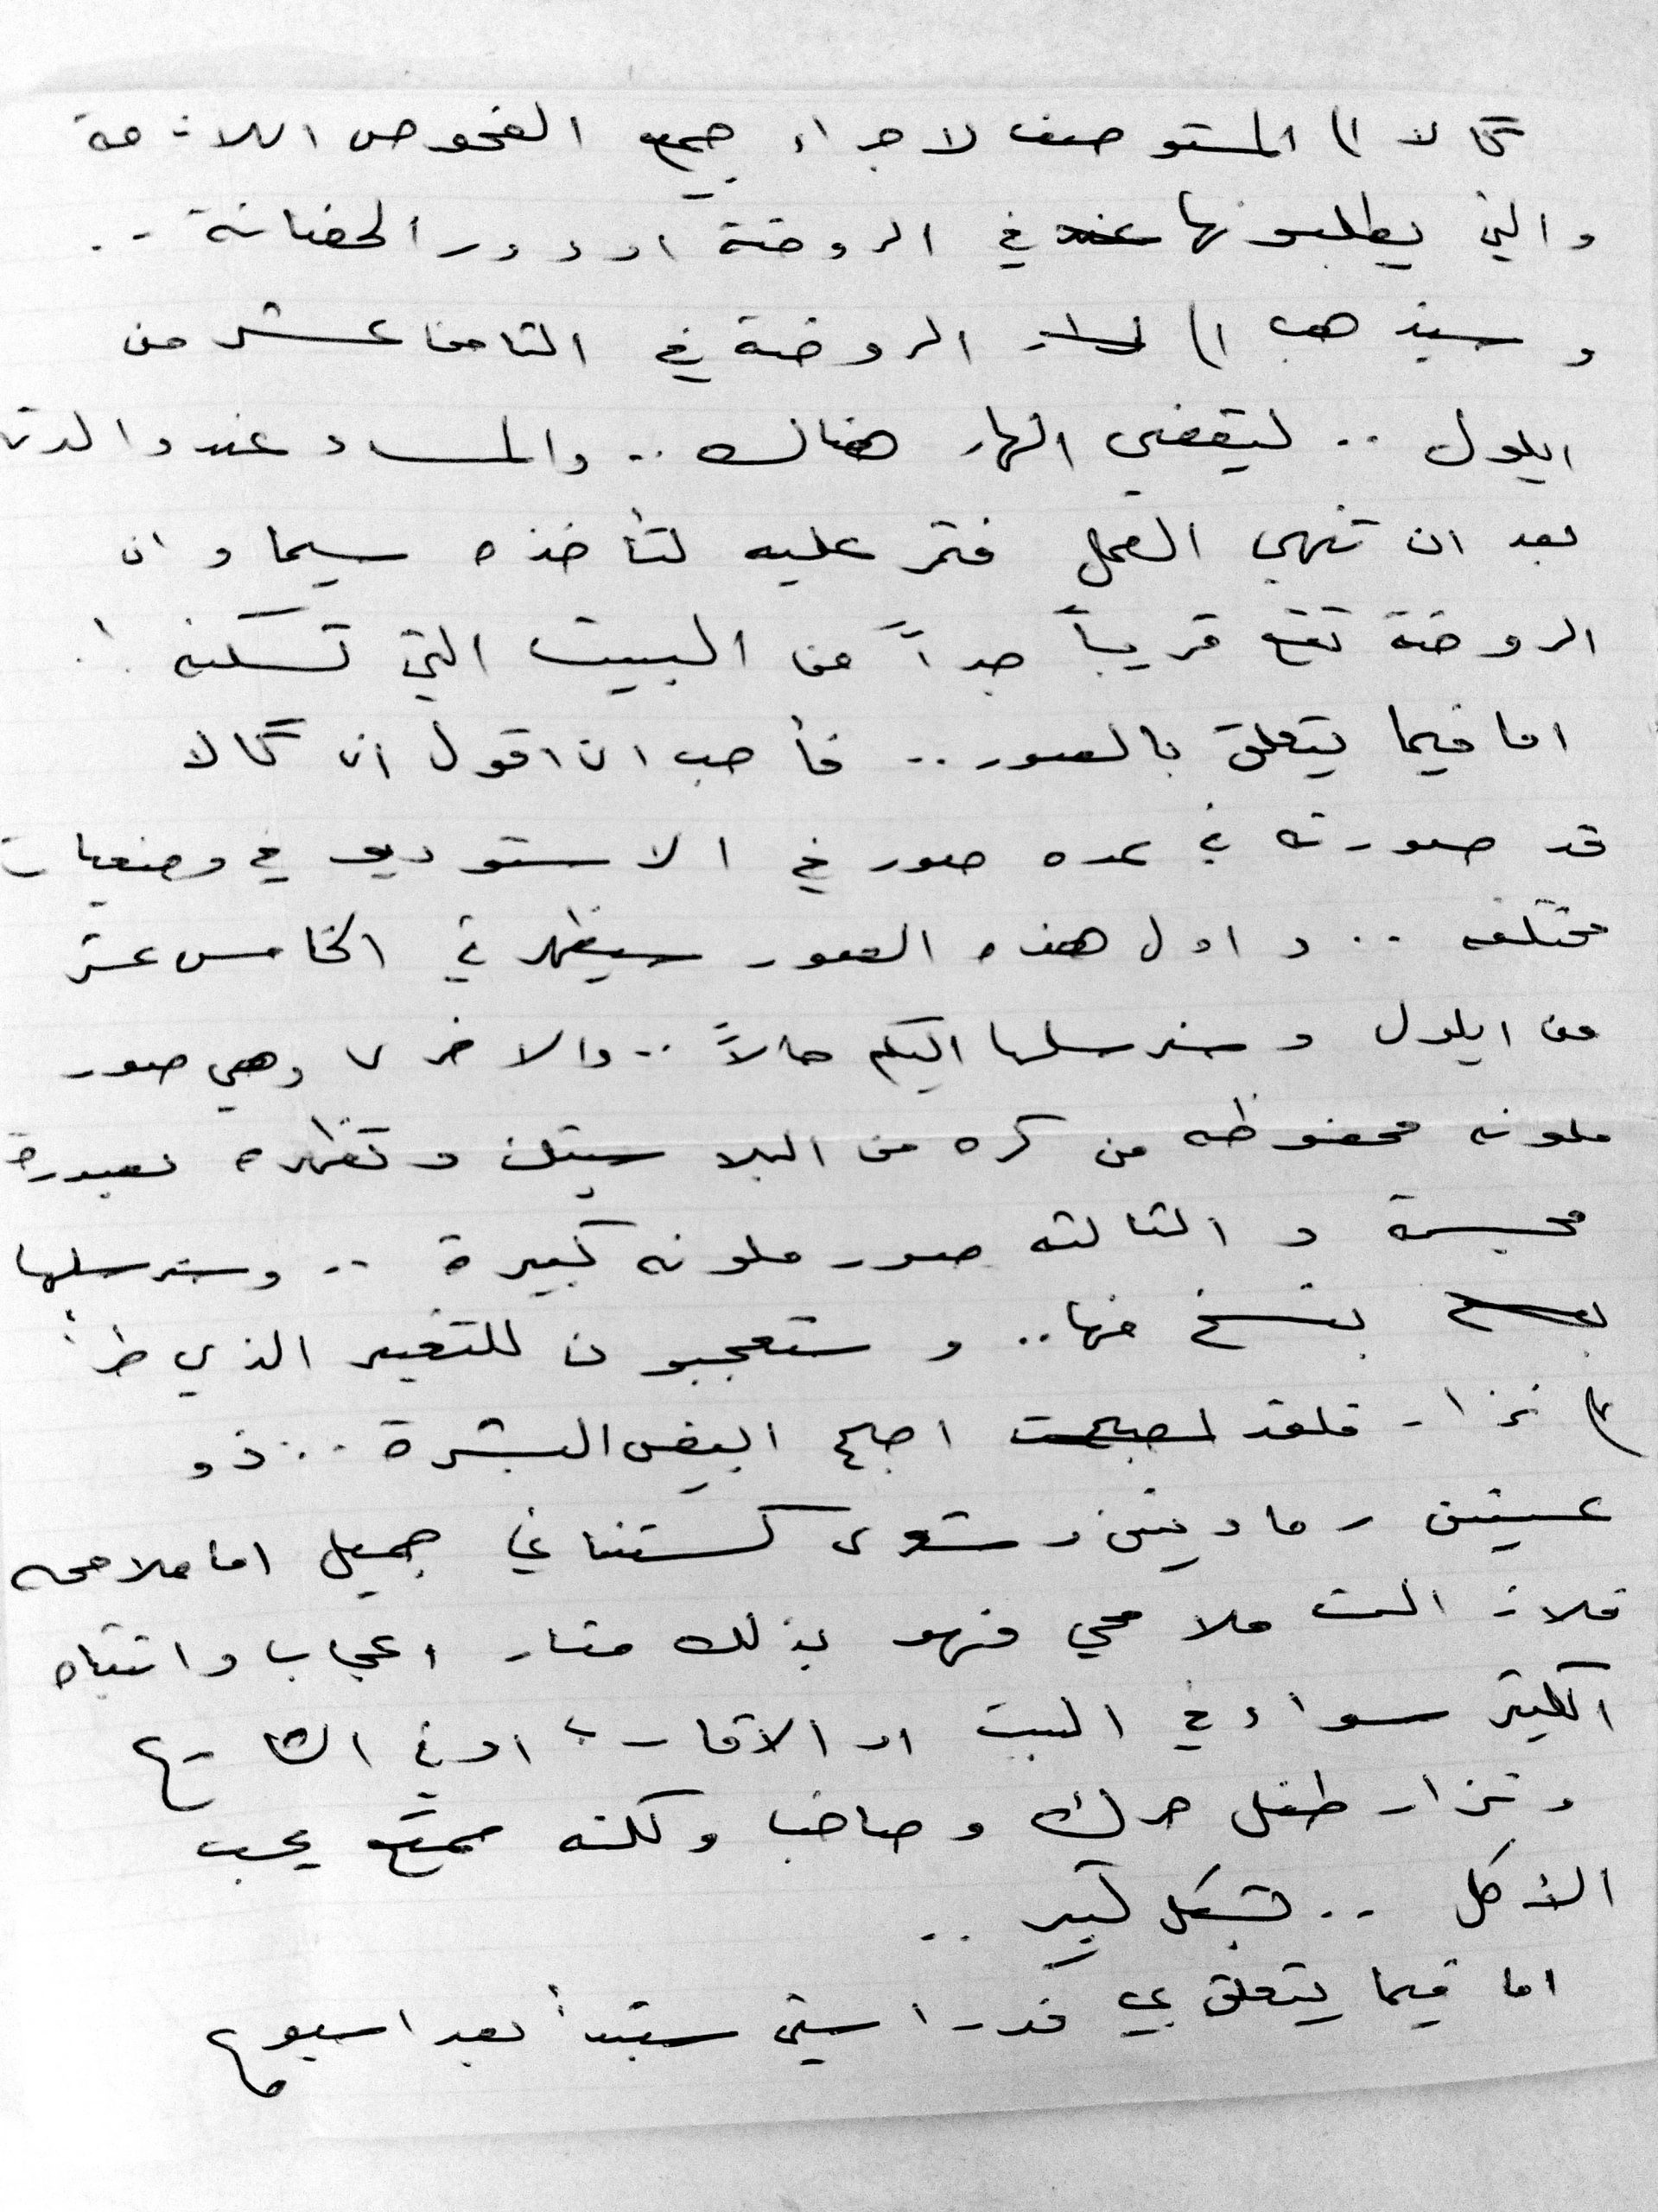 گالا الى المستوصف لاجراء جميع الفحوص اللازمة
والتي يطلبونها عند في الروضة او دور الحضانة ..
وسيذهب الى الروضة في الثامن عشر من
ايلول .. ليقضي النهار هناك .. والمساء عند والدته
بعد ان تنهي العمل فتمر عليه لتأخذه سيما وان
الروضة تقع قريباً جداً من البيت التي تسكنه !.
اما فيما يتعلق بالصور .. فأحب ان اقول ان گالا
قد صورته في عده صور في الاستوديو في وضعيات
مختلفه .. و اول هذه الصور سيظهر في الخامس عشر
من ايلول وسنرسلها اليكم حالاً .. والاخرى وهي صور
ملونه محفوظه من كره من البلاستيك وتظهره بصورة
مجسمة و الثالثه صور ملونه كبيرة .. وسنرسلها
بنسخ منها .. و ستعجبون للتغير الذي طرأ
على نزار فلقد اصبحت اصبح ابيض البشرة .. ذو
عينين رماديتين وشعر كستنائي جميل اما ملامحه
فلازالت ملامحي فهو بذلك مثار اعجاب وانتباه
الكثير سواء في البيت او الاقارب او في الشارع
ونزار طفل حرك وصاخب ولكنه ممتع يحب
الأكل .. بشكل كبير ..
اما فيما يتعلق بي فدراستي ستبدأ بعد اسبوع